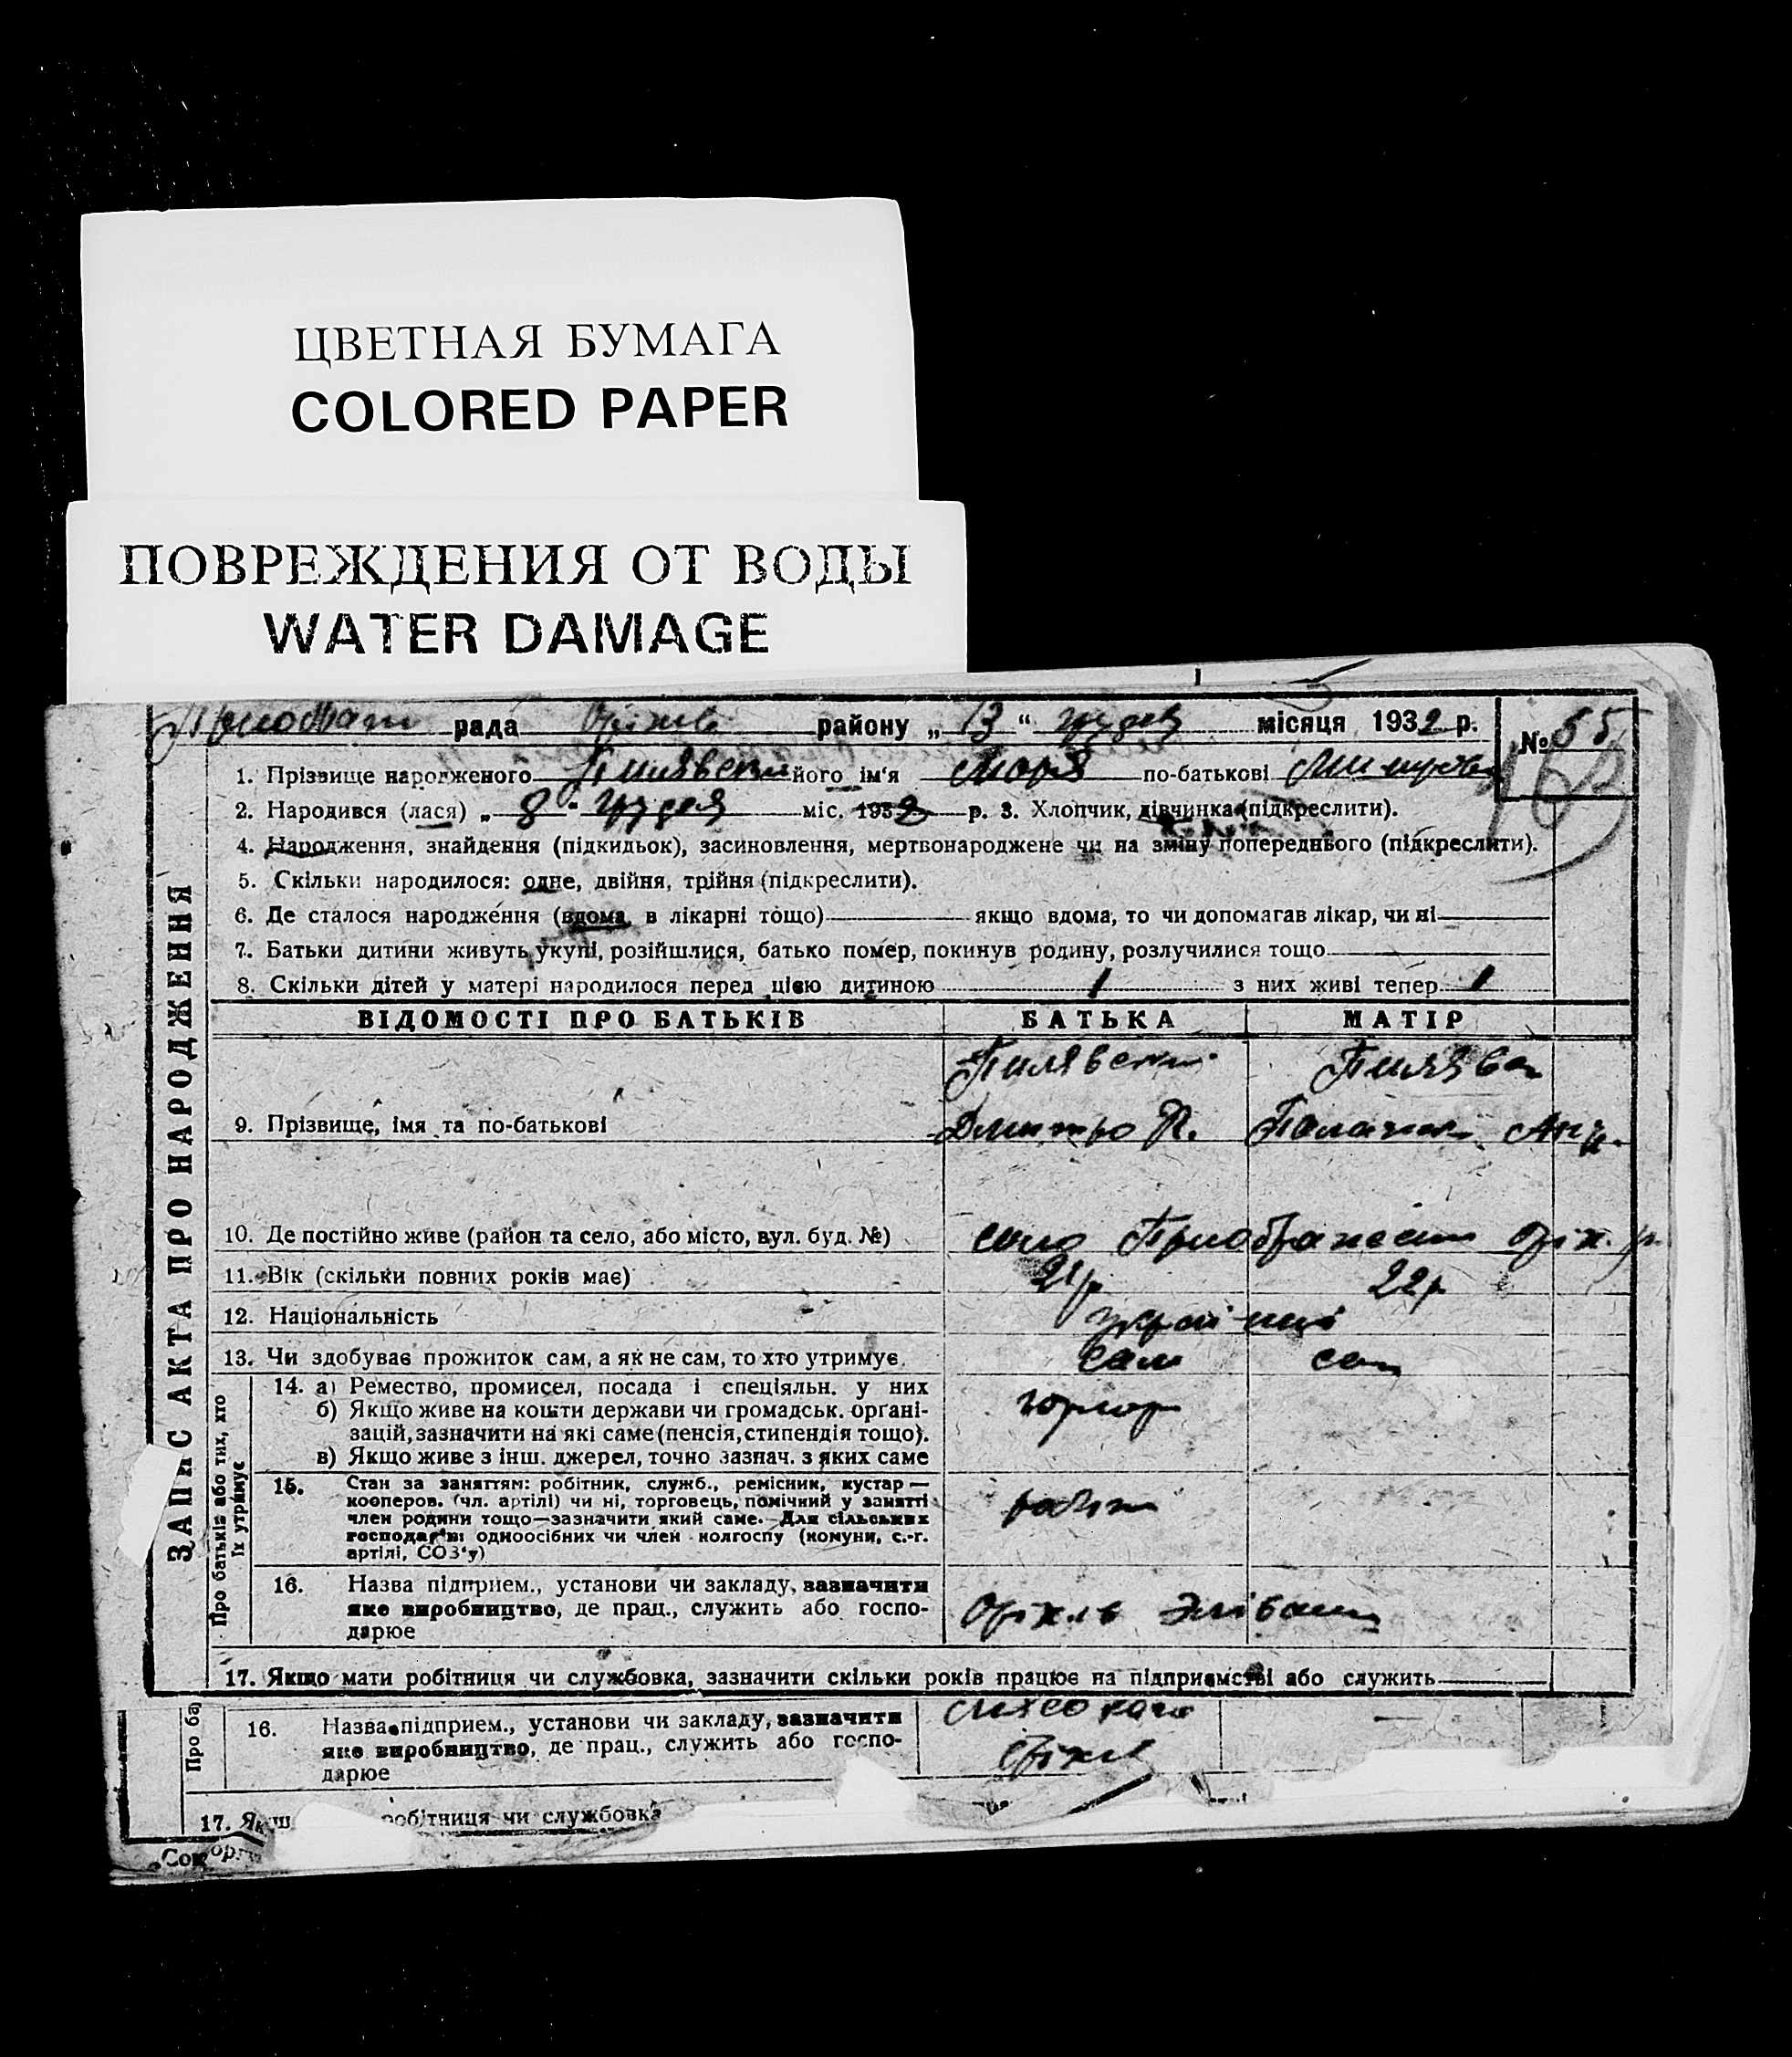 ЦВЕТНАЯ БУМАГА
COLORED PAPER
ПОВРЕЖДЕНИЯ ОТ ВОДЫ
WATER DAMAGE
рада району „13“ грудня місяця 1932 р.
№ 65
1. Прізвище народженого Пилявский його ім'я Марія по-батькові
2. Народився (лася) „8" грудня міс. 1932 р. 3. Хлопчик, дівчинка (підкреслити).
4. Народження, знайдення (підкидьок), засиновлення, мертвонароджене чи на зміну попереднього (підкреслити).
5. Скільки народилося: одне, двійня, трійня (підкреслити).
6. Де сталося народження (вдома, в лікарні тощо) якщо вдома, то чи допомагав лікар, чи ні
7. Батьки дитини живуть укупі, розійшлися, батько помер, покинув родину, розлучилися тощо
8. Скільки дітей у матері народилося перед цією дитиною 1 з них живі тепер 1
ЗАПИС АКТА ПРО НАРОДЖЕННЯ
ВІДОМОСТІ ПРО БАТЬКІВ БАТЬКА МАТІР
9. Прізвище, імя та по-батькові
Дмитро
10. Де постійно живе (район та село, або місто, вул. буд. №) село Оріх. р.
11. Вік (скільки повних років має) 21 р 22 р
12. Національність українці
13. Чи здобуває прожиток сам, а як не сам, то хто утримує. сам сам
Про батьків або тих, хто їх утримує
14. а) Ремество, промисел, посада і спеціяльн. у них
б) Якщо живе на кошти держави чи громадськ. органі-
зацій, зазначити на які саме (пенсія, стипендія тощо).
в) Якщо живе з інш. джерел, точно зазнач. з яких саме
15. Стан за заняттям: робітник, служб., ремісник, кустар —
кооперов. (чл. артілі) чи ні, торговець, помічний у занятті
член родини тощо—зазначити який саме. Для сільських
господарів: одноосібних чи член колгоспу (комуни, с.-г.
артілі, СОЗ'у)
16. Назва підприєм., установи чи закладу, зазначити
яке виробництво, де прац., служить або госпо-
дарюе
17. Якщо мати робітниця чи службовка, зазначити скільки років працює на підприємстві або служить
Про ба
16. Назва підприєм., установи чи закладу, зазначити
яке виробництво, де прац., служить або госпо-
дарюе
17. Якщ робітниця чи службовка